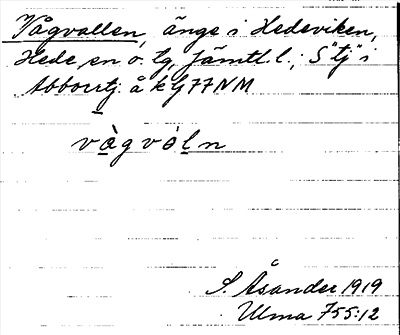 Vågvallen, änge i Hedeviken,
Hede, en ö. tg, Jämtl. l.; S "tj" i
Abborrtj. å k bl 77 NM
vàgvóln
S. Åsander 1919
Ulma 755:12